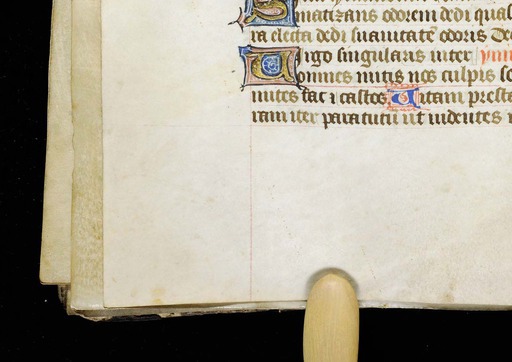 matizans odorem dedi quas
ra electa dedi suauitatē odoris De
Uirgo singularis inter ymn
omnes mitis nos culpis so
mites fac ⁊ castos Uitam presta
ram iter para tutū ut uidentes